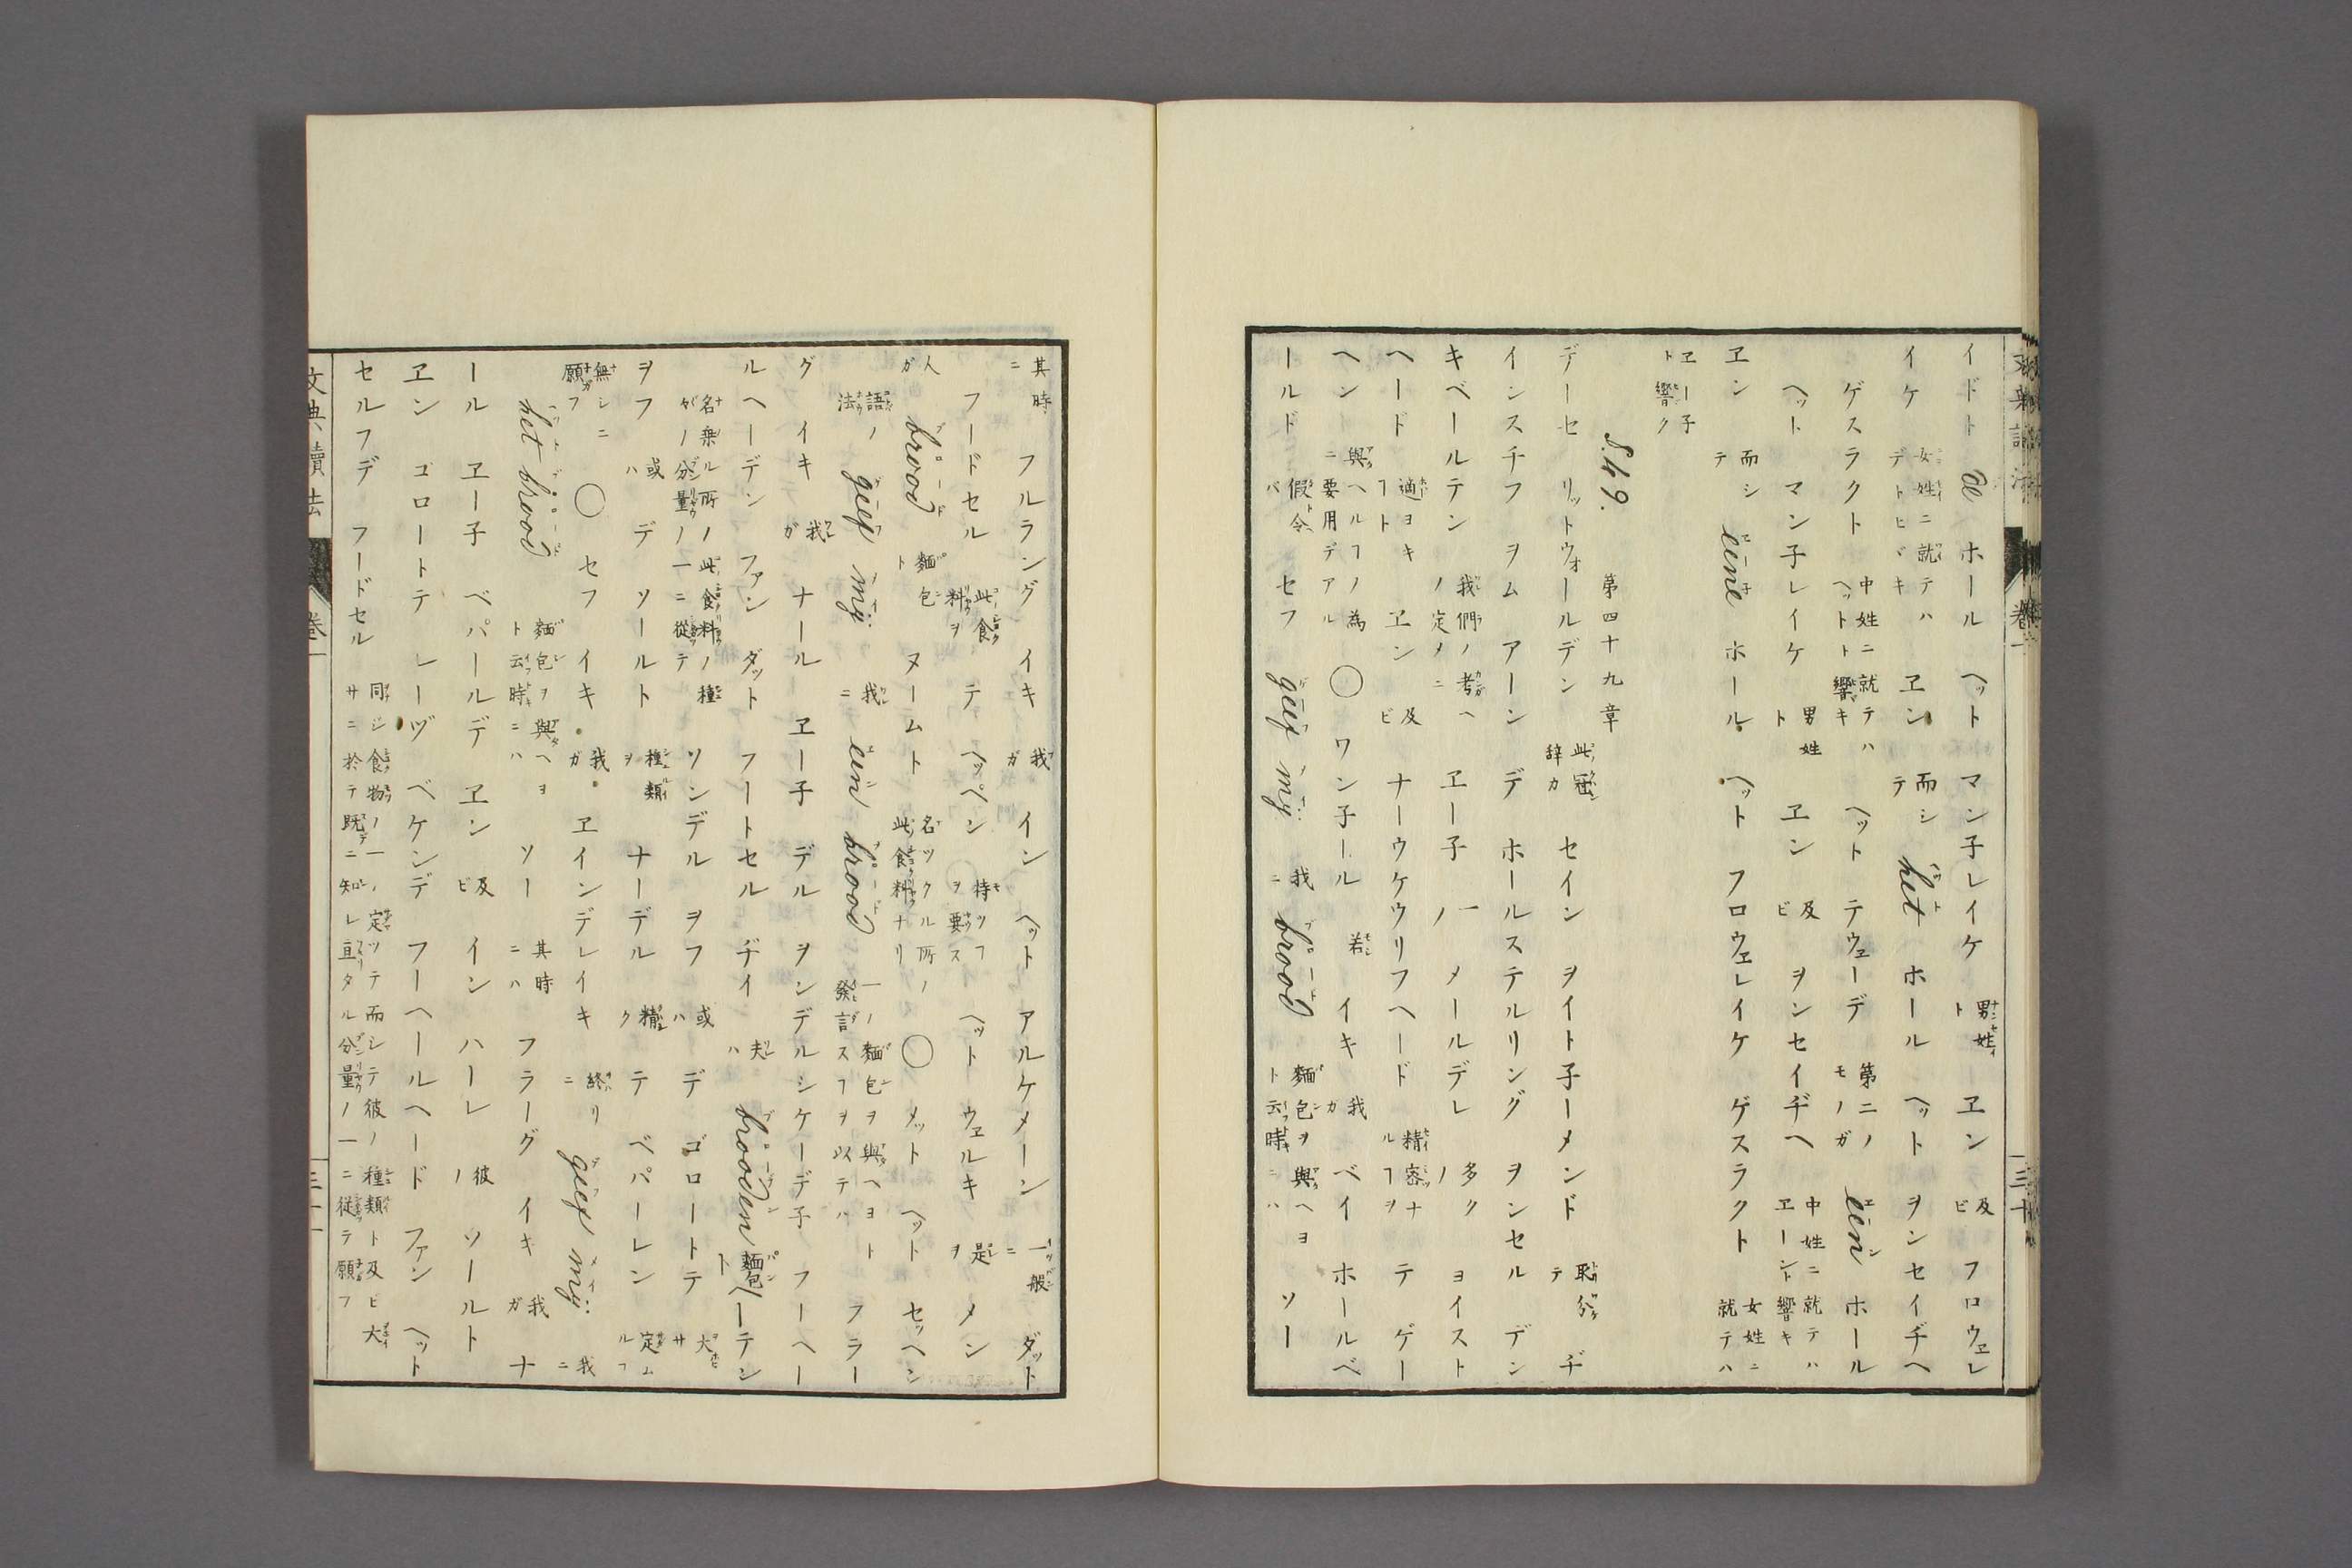 イドト de ホール ヘット マン子レイケ 男姓ト ヱン 及ビ フロウェレ
イケ 女姓ニ就テハデトヒヾキ ヱン 而シテ het ホール ヘット ヲンセイヂヘ
ゲスラクト 中姓ニ就テハヘットト響キ ヘット テウェーデ 第二ノモノガ een ホール
ヘット マン子レイケ 男姓ト ヱン 及ビ ヲンセイヂヘ 中姓ニ就テハヱーント響キ女姓ニ就テハ
ヱン 而シテ eene ホール ヘット フロウェレイケ ゲスラクト
ヱー子ト響ク
§.49. 第四十九章
デーセ リットウォールデン 此冠辞カ セイン ヲイト子ーメンド テ ヂ
インスチフ ヲム アーン デ ホールステルリング ヲンセル デン
キベールテン 我們ノ考ヘノ定メニ ヱー子 一ノ メールデレ 多クノ ヨイスト
ヘード 適ヨキヿト ヱン 及ビ ナーウケウリフヘード 精密ナルヿヲ テ ゲー
ヘン 與ヘルヿノ為ニ要用デアル ○ ワン子ール 若 イキ 我ガ ベイ ホールベ
ールド 假令バ セフ geef mij 我ニ brood 麺包ヲ與ヘヨト云フ時ニハ ソー
其時ニ フルラング イキ 我ガ イン ヘット アルケメーン 一般ニ ダット
フードセル 此食料ヲ テ ヘッペン 持ツヿヲ要ス ヘット ウェルキ 是ヲ メン
人ガ brood 麺包ト ヌームト 名ツクル所ノ此食料ナリ ○ メット ヘット セッヘン
語法ノ geef mij 我ニ een brood 一ノ麺包ヲ與ヘヨト發言スヿヲ以テハ フラー
グ イキ 我ガ ナール ヱー子 デル ヲンデルシケーデ子 フーヘー
ルヘーデン ファン ダット フートセル ヂイ 夫ハ brooden 麺包ト ヘーテン
名乗ル所ノ此食料ノ種ガノ分量ノ一ニ從テ ソンデル ヲフ 或ハ デ ゴロートテ 大サ
ヲフ 或ハ デ ソールト 種類ヲ ナーデル 精ク テ ベパーレン 定ムルヿ
無シニ願フ ○ セフ イキ 我ガ ヱインデレイキ 終リニ geef mij 我ニ
het brood 麺包ヲ與ヘヨト云時ニハ ソー 其時ニハ フラーグ イキ 我ガ ナ
ール ヱー子 ベパールデ ヱン 及ビ イン ハーレ 彼ノ ソールト
ヱン ゴロートテ レーヅ ベケンデ フーヘールヘード ファン ヘット
セルフデ フードセル 同ジ食物ノ一ノ定ツテ而シテ彼ノ種類ト及ビ大サニ於テ既ニ知レ亘タル分量ノ一ニ従テ願フ
文典讀法 卷一
三十